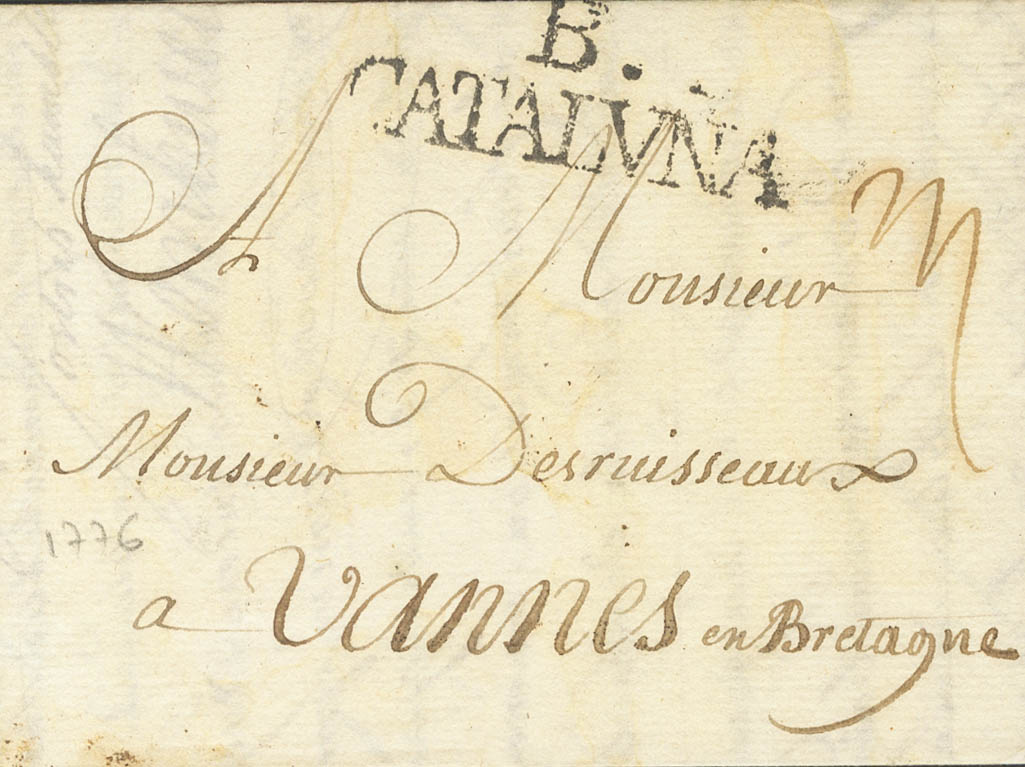 B.
CATALVÑA
A Monsieur
Monsieur Desruisseaux
1776
a Vannes en Bretagne